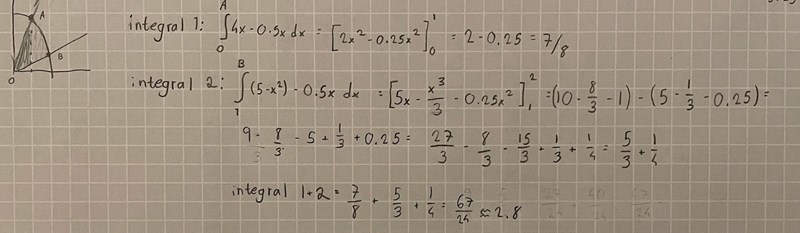 A
B
O
integral 1: ∫₀ᴬ 4x - 0.5x dx = [2x² - 0.25x²]₀¹ = 2 - 0.25 = 7/8
integral 2: ∫₁ᴮ (5-x²) - 0.5x dx = [5x - x³/3 - 0.25x²]₁² = (10 - 8/3 - 1) - (5 - 1/3 - 0.25) =
9 - 8/3 - 5 + 1/3 + 0.25 = 27/3 - 8/3 - 15/3 + 1/3 + 1/4 = 5/3 + 1/4
integral 1+2 = 7/8 + 5/3 + 1/4 = 67/24 ≈ 2.8